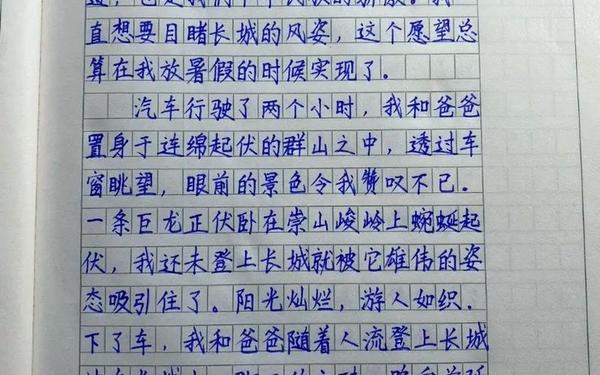 直想要目睹长城的风姿，这个愿望总
算在我放暑假的时候实现了。
汽车行驶了两个小时，我和爸爸
置身于连绵起伏的群山之中，透过车
窗眺望，眼前的景色令我赞叹不已.
一条巨龙正伏卧在崇山峻岭上蜿蜒起
伏，我还未登上长城就被它雄伟的姿
态吸引住了。阳光灿烂，游人如织.
下了车，我和爸爸随着人流登上长城